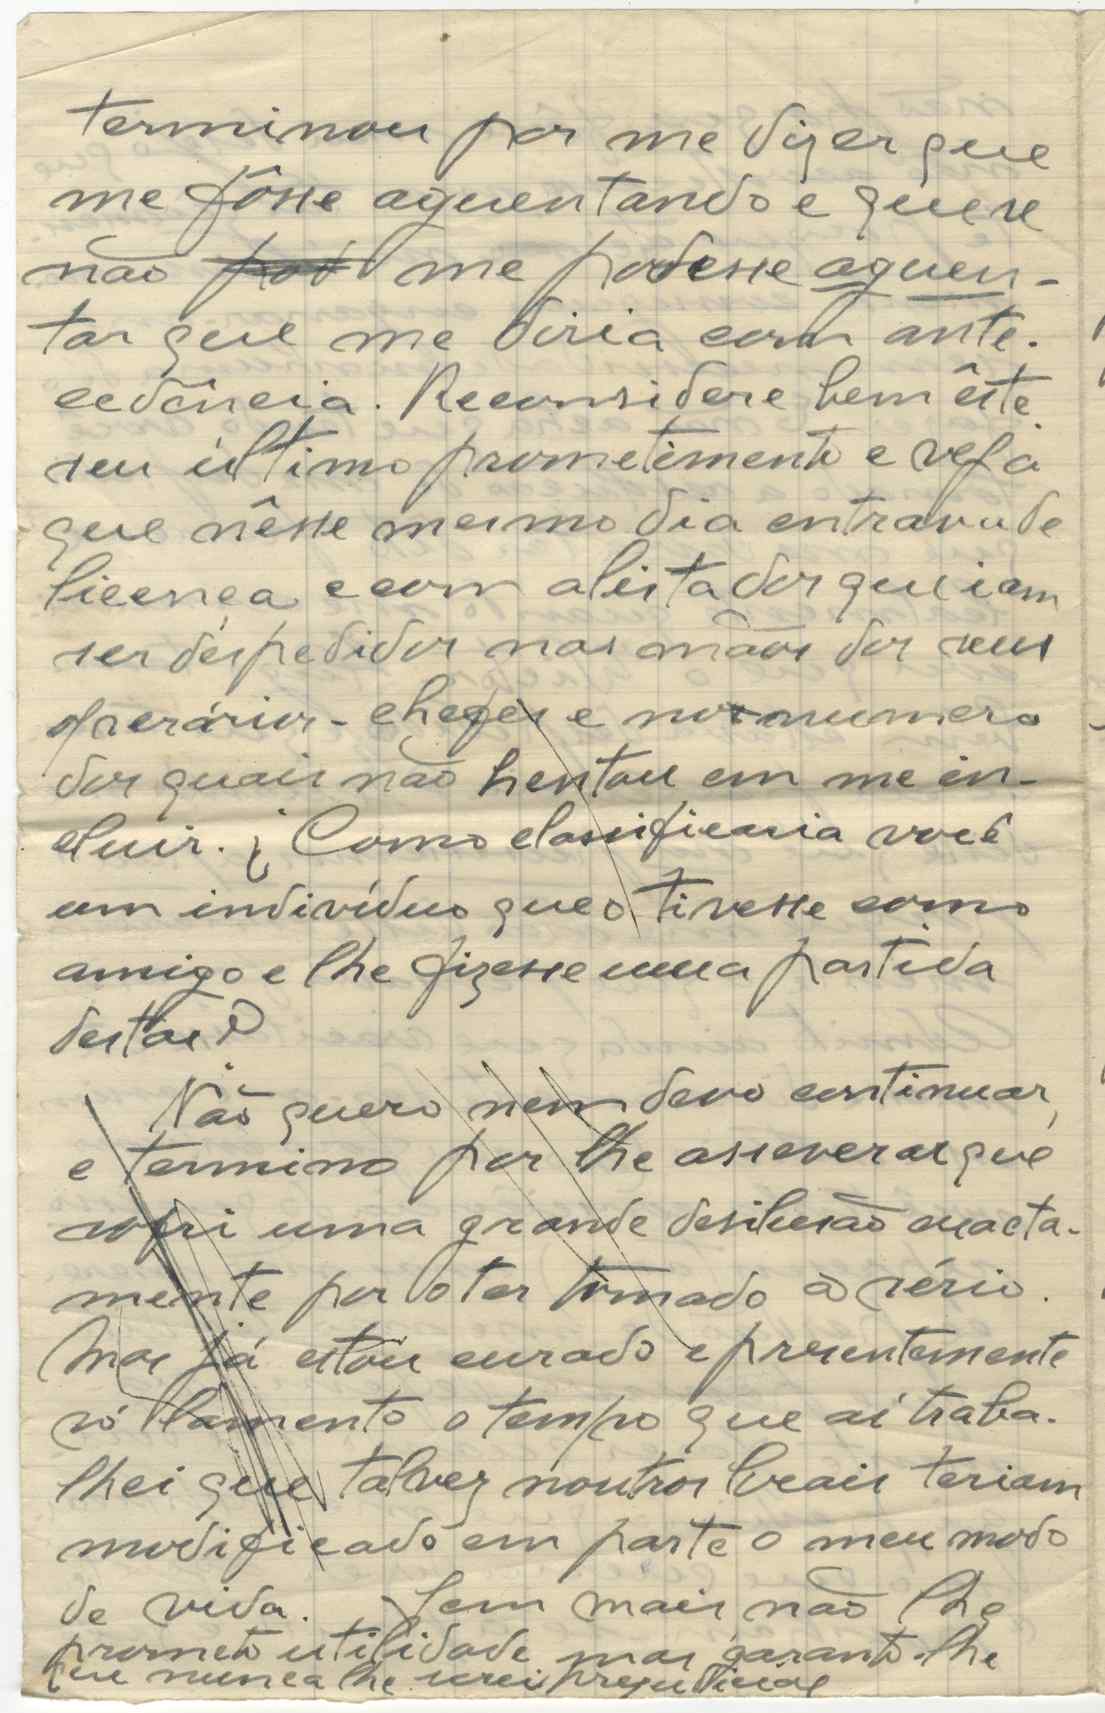 terminou por me dizer que
me fôsse aguentando e que se
não pod me podesse aguen-
tar que me diria com ante-
cedência. Reconsidere bem êste
seu último prometimento e veja
que nêsse mesmo dia entrava de
licença e com a lista dos que iam
ser despedidos nas mãos dos seus
operários-chefes e no numero
dos quais não hentou em me in-
cluir. ¿ Como classificaria você
um indivíduo que o tivesse como
amigo e lhe fizesse uma partida
destas?
Não quero nem devo continuar,
e termino por lhe asseverar que
sofri uma grande desilusão exacta-
mente por o ter tomado a sério.
Mas já estou curado e presentemente
só lamento o tempo que aí traba-
lhei que talvez noutros locais teriam
modificado em parte o meu modo
de vida. Sem mais não lhe
prometo utilidade mas garanto-lhe
que nunca lhe serei prejudicial